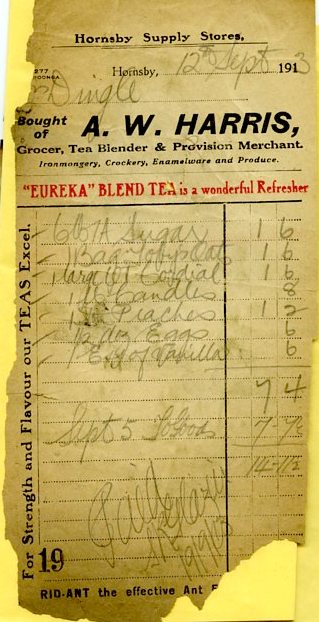 Hornsby Supply Stores,
277
Hornsby, 12th Sept 1913
Dingle
Bought of A. W. HARRIS,
Grocer, Tea Blender & Provision Merchant.
Ironmongery, Crockery, Enamelware and Produce.
"EUREKA" BLEND TEA is a wonderful Refresher
For Strength and Flavour our TEAS Excel.
Sugar 1 6
1 Bag 1 6
1 Large Cordial 1 6
Candles 8
Peaches 1 2
Eggs 6
Vanilla 6
7 4
Sept 5 To Goods 7
Paid
19
RID-ANT the effective Ant